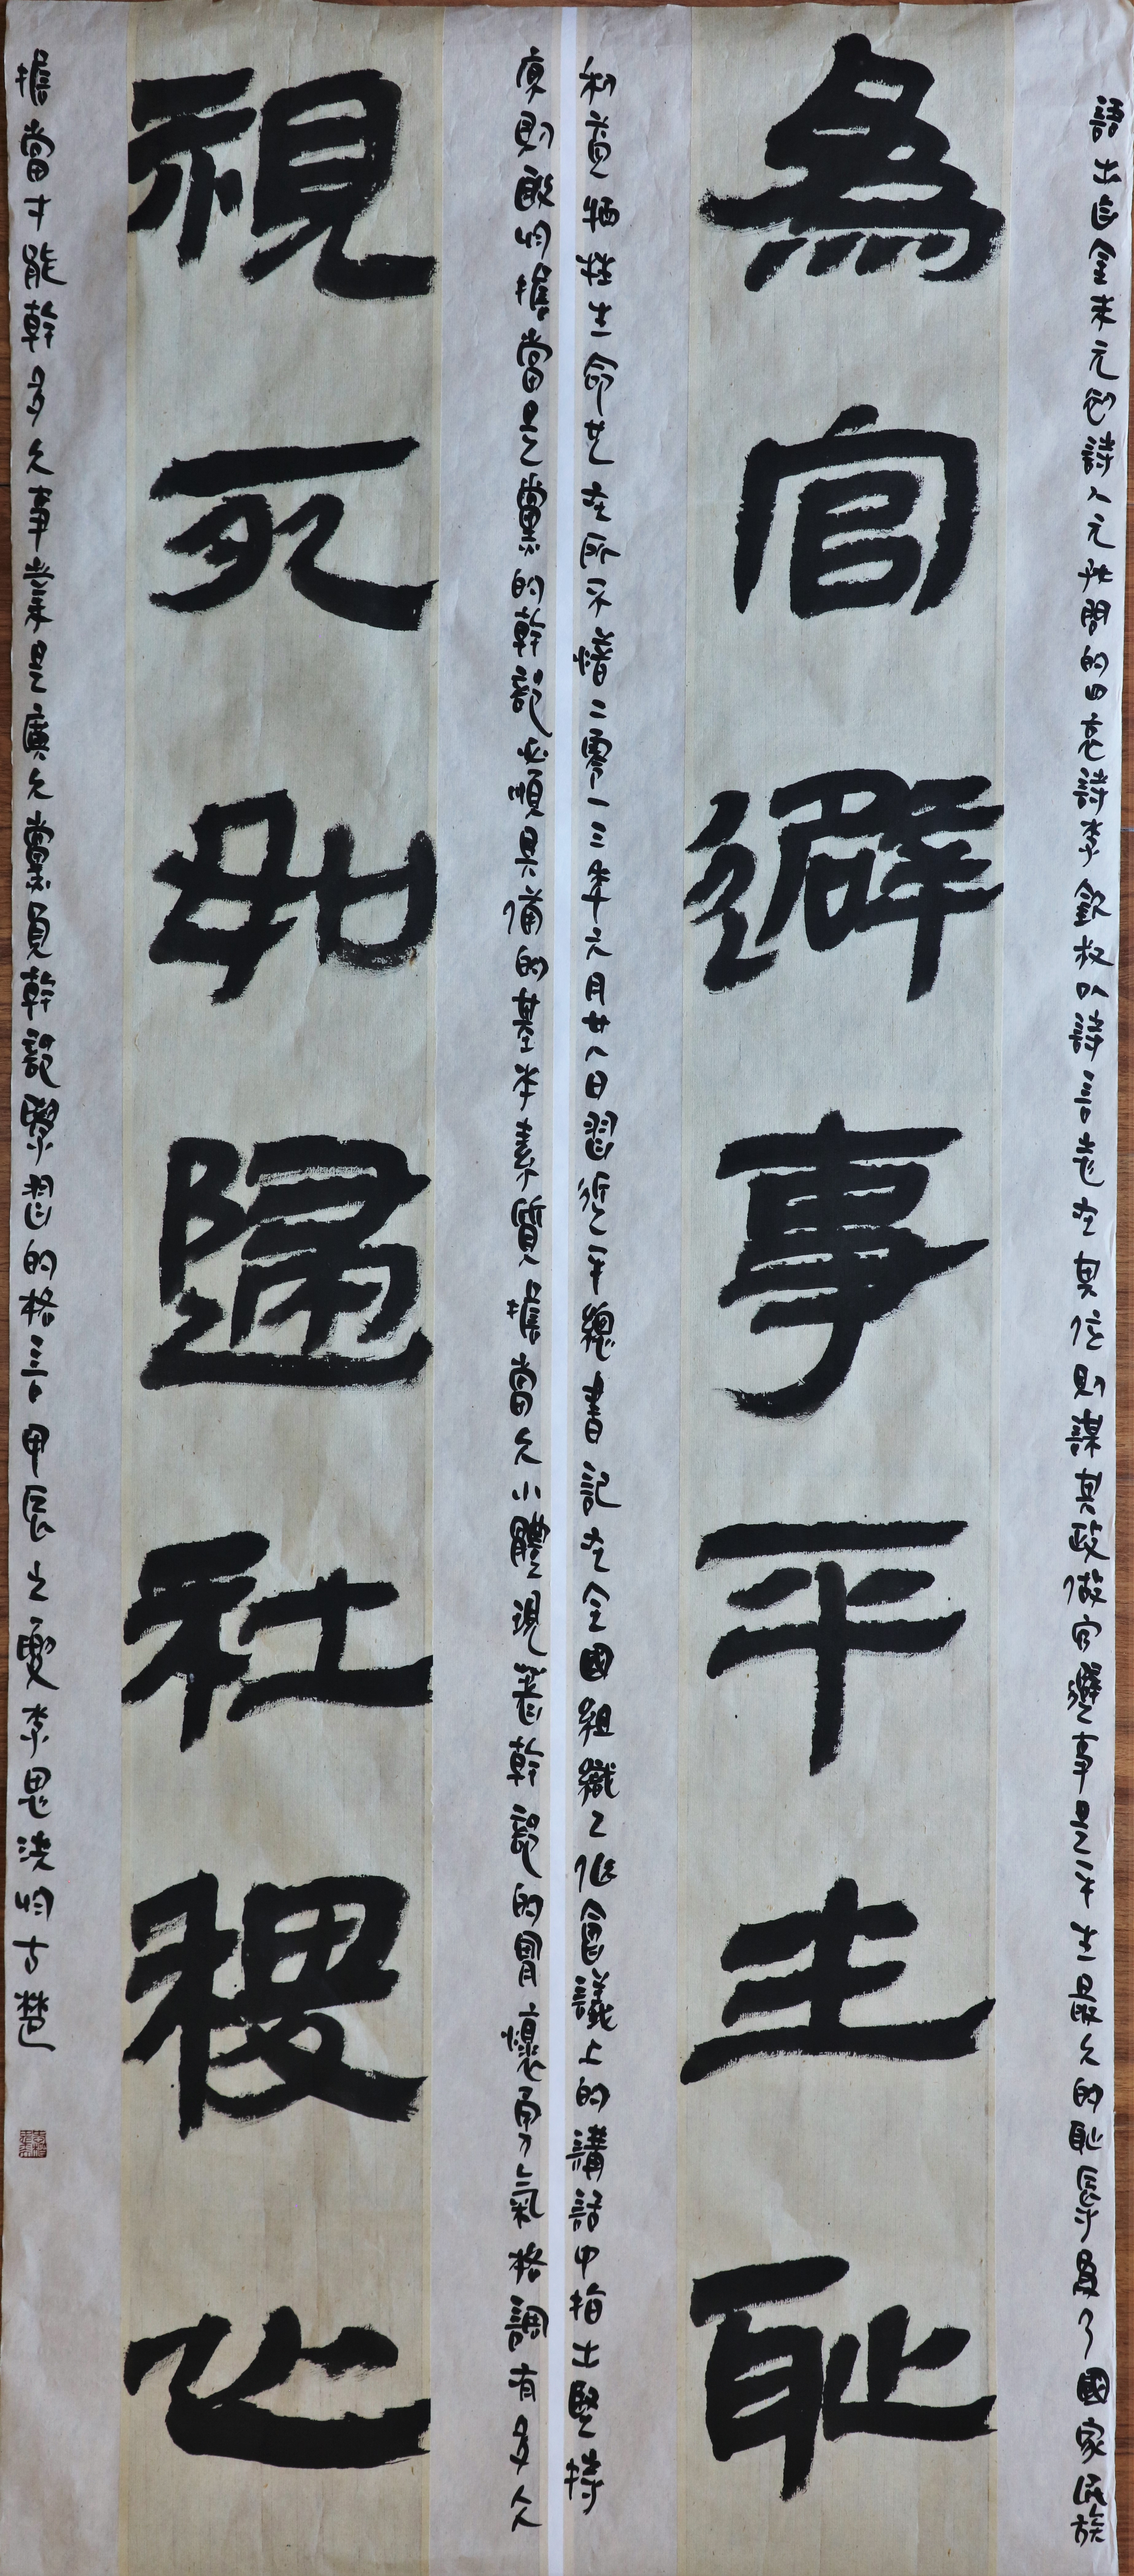 語出自金末元初詩人元好問的四哀詩李欽叔以詩言志在其位則謀其政做官避事是平生最大的恥辱為了國家民族
為官避事平生恥
利益犧牲生命也在所不惜二零一三年六月廿八日習近平總書記在全國組織工作會議上的講話中指出堅持
原則敢於擔當是黨的幹部必須具備的基本素質擔當大小體現著幹部的胸懷勇氣格調有多大
視死如歸社稷心
擔當才能幹多大事業是廣大黨員幹部學習的格言甲辰之夏李思於古楚